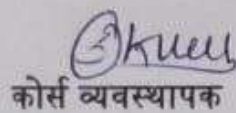 कोर्स व्यवस्थापक